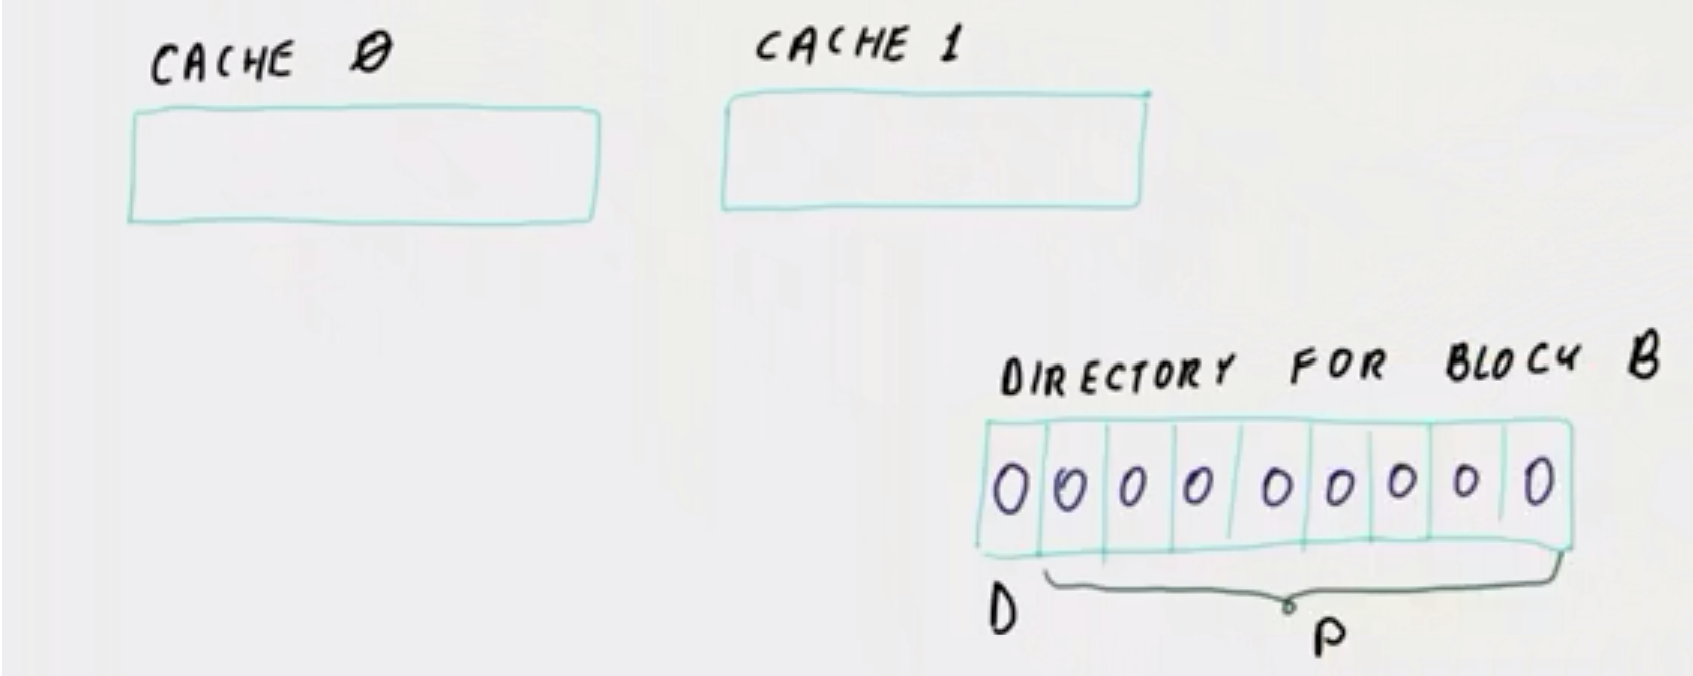 CACHE 0
CACHE 1
DIRECTORY FOR BLOCK B
0 0 0 0 0 0 0 0 0
D
P